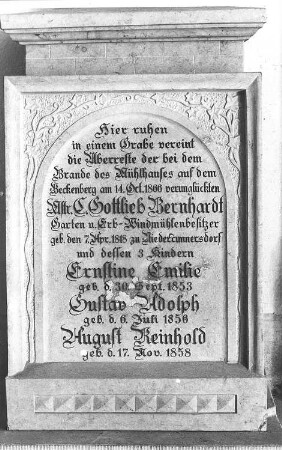 Hier ruhen
in einem Grabe vereint
die Überreste der bei dem
Brande des Mühlhauses auf dem
Beckenberg am 14. Oct. 1866 verunglückten
Mstr. C. Gottlieb Bernhardt
Garten u. Erb-Windmühlenbesitzer
geb. den 7. Apr. 1818 zu Niedercunnersdorf
und dessen 3 Kindern
Ernstine Emilie
geb. d. 30. Sept. 1853
Gustav Adolph
geb. d. 6. Juli 1856
August Reinhold
geb. d. 17. Nov. 1858